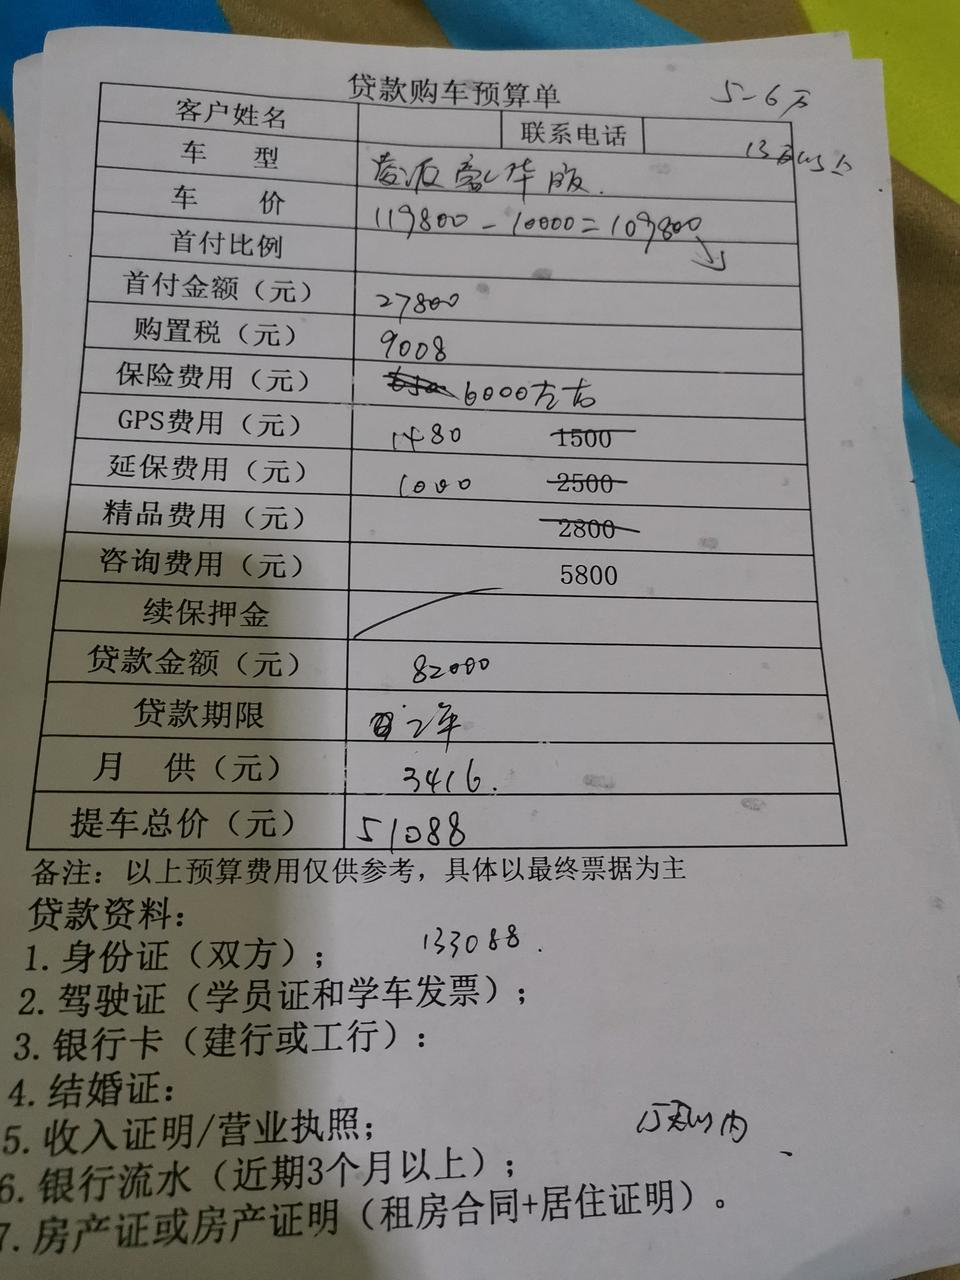 贷款购车预算单
5-6万
客户姓名 联系电话
13万以上
车 型 凌派豪华版.
车 价 119800-10000=109800
首付比例
首付金额（元） 27800
购置税（元） 9008
保险费用（元） 6000左右
GPS费用（元） 1480 1500
延保费用（元） 1000 2500
精品费用（元） 2800
咨询费用（元） 5800
续保押金
贷款金额（元） 82000
贷款期限 2年
月 供（元） 3416.
提车总价（元） 51088
备注：以上预算费用仅供参考，具体以最终票据为主
贷款资料：
133088.
1.身份证（双方）；
2.驾驶证（学员证和学车发票）；
3.银行卡（建行或工行）：
4.结婚证：
5.收入证明/营业执照；
万以内
6.银行流水（近期3个月以上）；
7.房产证或房产证明（租房合同+居住证明）。